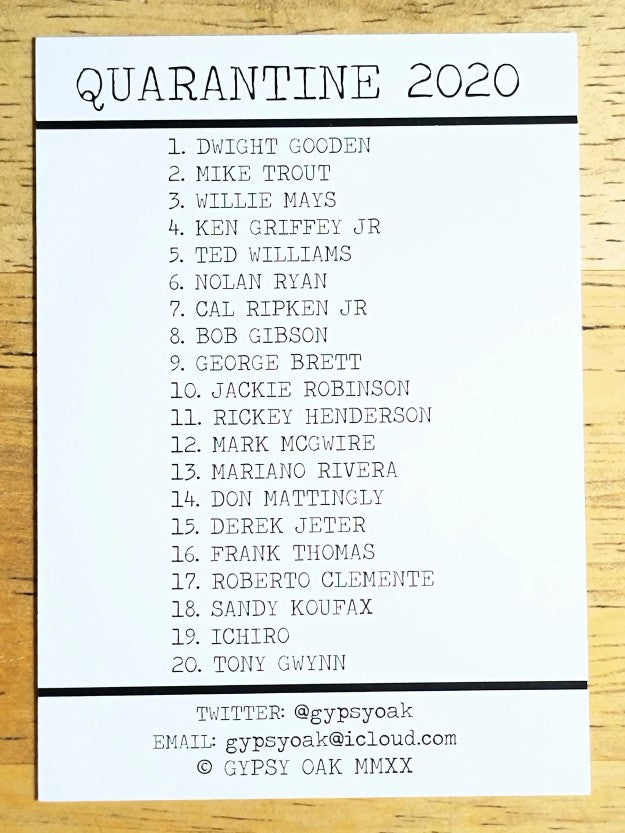 QUARANTINE 2020
1. DWIGHT GOODEN
2. MIKE TROUT
3. WILLIE MAYS
4. KEN GRIFFEY JR
5. TED WILLIAMS
6. NOLAN RYAN
7. CAL RIPKEN JR
8. BOB GIBSON
9. GEORGE BRETT
10. JACKIE ROBINSON
11. RICKEY HENDERSON
12. MARK MCGWIRE
13. MARIANO RIVERA
14. DON MATTINGLY
15. DEREK JETER
16. FRANK THOMAS
17. ROBERTO CLEMENTE
18. SANDY KOUFAX
19. ICHIRO
20. TONY GWYNN
TWITTER: @gypsyoak
EMAIL: gypsyoak@icloud.com
© GYPSY OAK MMXX